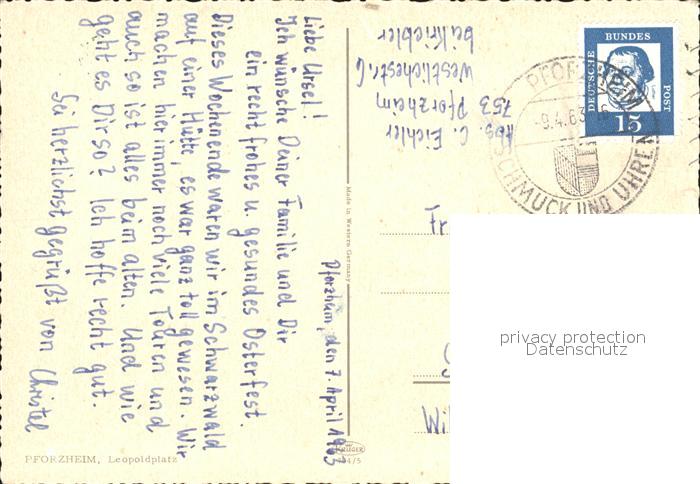 Pforzheim, den 7. April 1963
Liebe Ursel!
Ich wünsche Deiner Familie und Dir
ein recht frohes u. gesundes Osterfest.
Dieses Wochenende waren wir im Schwarzwald
auf einer Hütte, es war ganz toll gewesen. Wir
machen hier immer noch viele Touren und
auch so ist alles beim alten. Und wie
geht es Dir so? Ich hoffe recht gut.
Sei herzlichst gegrüßt von Christel
Abs. C. Eichler
753 Pforzheim
Westlichestr. 6
bei Kriebler
DEUTSCHE
BUNDES
POST
15
PFORZHEIM
-9.4.63
SCHMUCK UND UHREN
Made in Western Germany
Fr
Wil
privacy protection
Datenschutz
KRÜGER
4/5
PFORZHEIM, Leopoldplatz